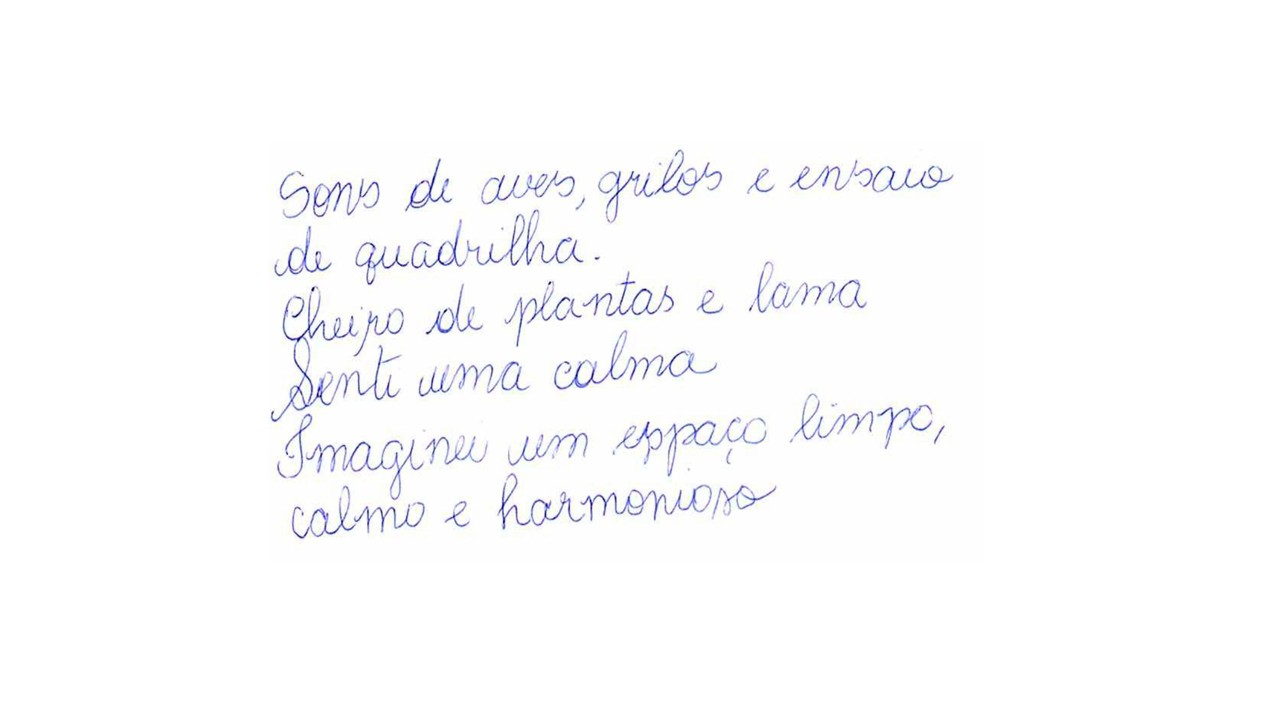 Sons de aves, grilos e ensaio
de quadrilha.
Cheiro de plantas e lama
Senti uma calma
Imaginei um espaço limpo,
calmo e harmonioso